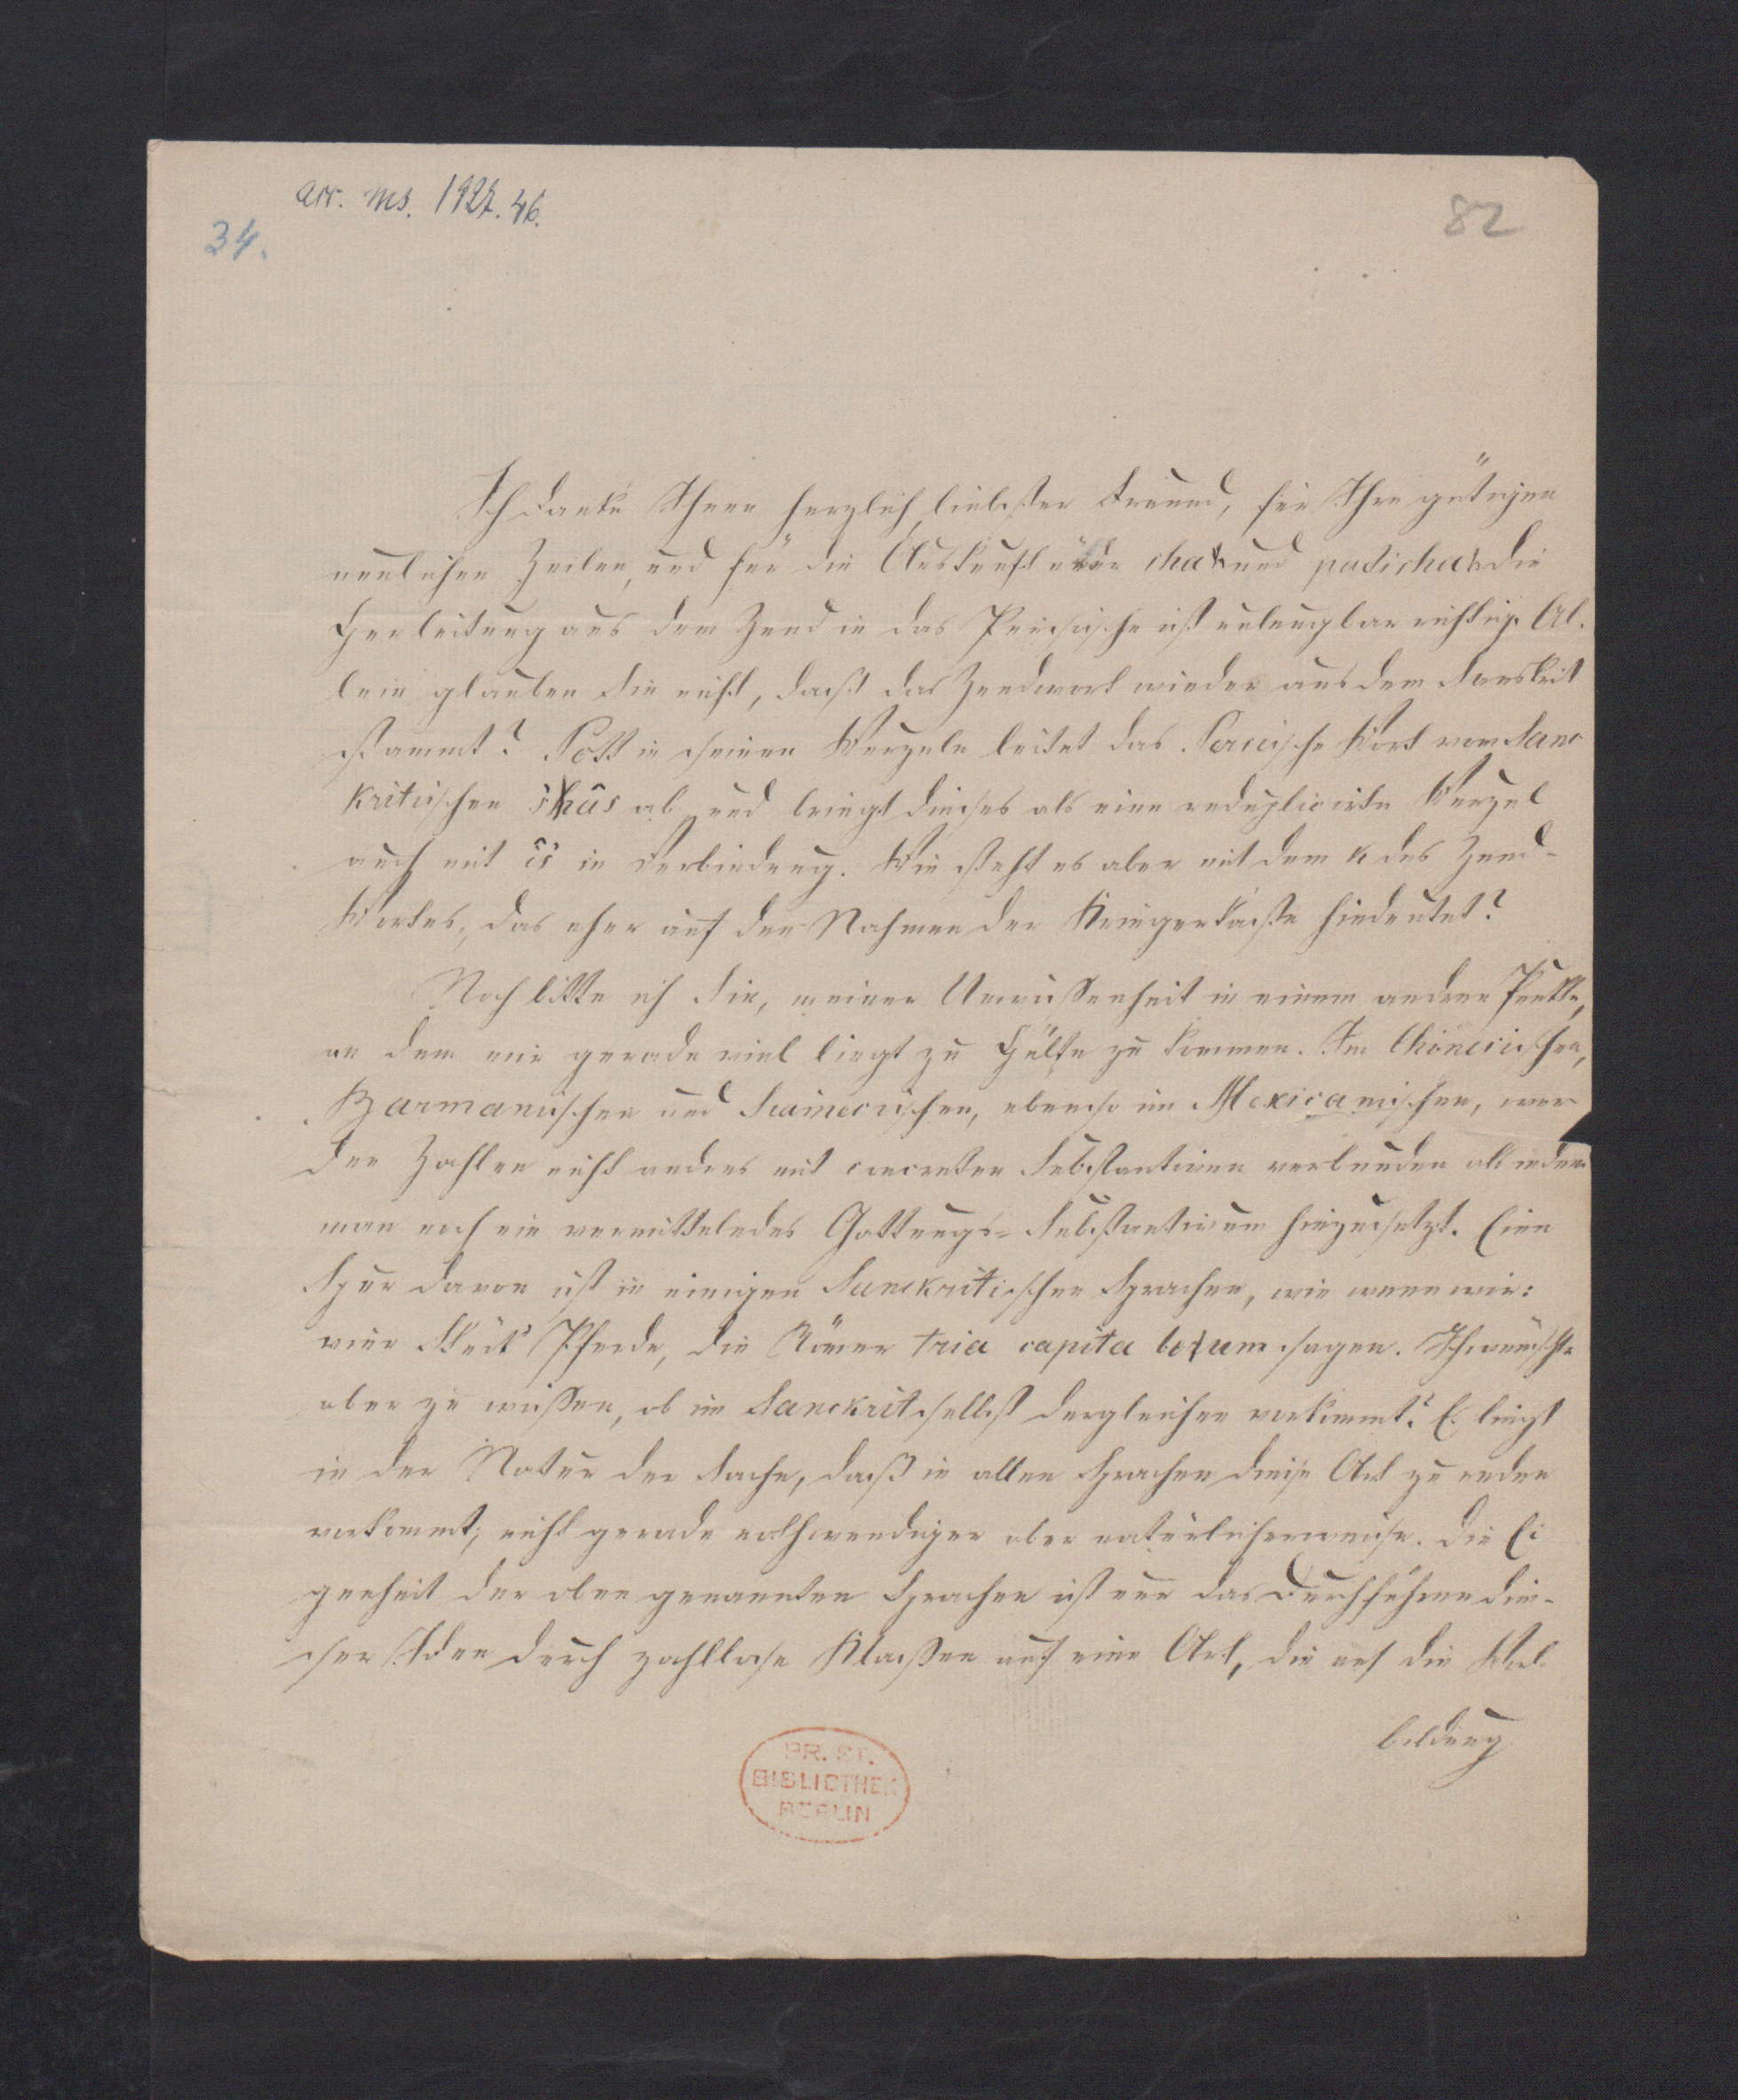 acc. ms. 1927. 46.
34.
82
Ich danke Ihnen herzlich, liebster Freund, für Ihre gütigen
neulichen Zeilen, und für die Auskunft über chah und padichah die
Herleitung aus dem Zend in das Persische ist unleugbar richtig. Al-
lein glauben Sie nicht, daß das Zendwort wieder aus dem Sanskrit
stammt? Pott in seinen Wurzeln leitet das Persische Wort vom Sans-
kritischen śâs ab und bringt dieses als eine reduplicirte Wurzel
auch mit îś in Verbindung. Wie steht es aber mit dem k des Zend-
Wortes, das eher auf den Nahmen der Kriegerkaste hindeutet?
Noch bitte ich Sie, meiner Unwissenheit in einem andren Punkte,
an dem mir gerade viel liegt zu Hülfe zu kommen. Im Chinesischen,
Barmanischen und Siamesischen, ebenso im Mexicanischen, wer
den Zahlen nicht anders mit concreten Substantiven verbunden als indem
man noch ein vermittelndes Gattungs-Substantivum hinzusetzt. Eine
Spur davon ist in einigen Sanskritischen Sprachen, wie wenn wir:
vier Stück Pferde, die Römer tria capita boum sagen. Ich wünschte
aber zu wissen, ob im Sanskrit selbst dergleichen vorkommt? Es liegt
in der Natur der Sache, daß in allen Sprachen diese Art zu reden
vorkommt, nicht gerade nothwendiger aber natürlicherweise. Die Ei
genheit der oben genannten Sprachen ist nur das Durchführen die-
ser Idee durch zahllose Klassen auf eine Art, die auf die Wel-
bildung
PR. ST.
BIBLIOTHEK
BERLIN